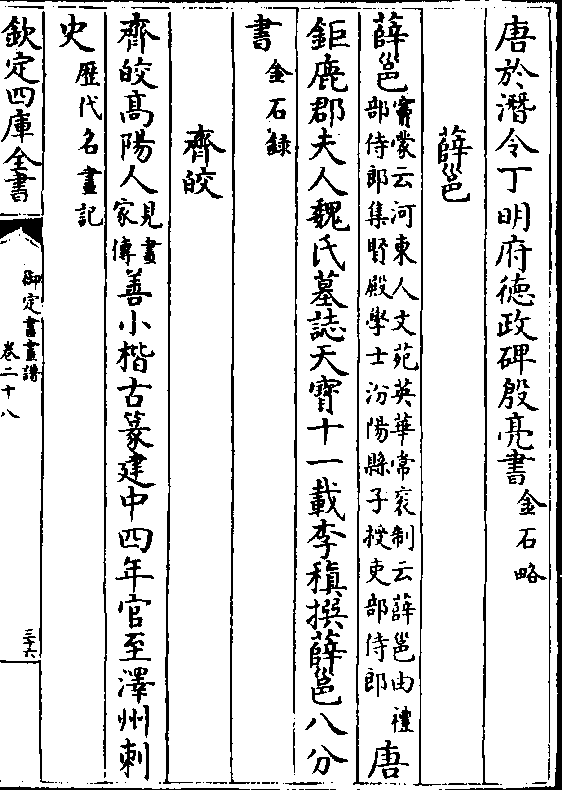 唐於潛令丁明府德政碑殷亮書金石略
薛邕
薛邕竇蒙云河東人文苑英華常衮制云薛邕由禮
部侍郎集賢殿學士汾陽縣子授吏部侍郎唐
鉅鹿郡夫人魏氏墓誌天寶十一載李稹撰薛邕八分
書金石録
齊皎
齊皎高陽人見畫
家傳善小楷古篆建中四年官至澤州刺
史歴代名畫記
欽定四庫全書
御定書畫譜
卷二十八
三十六